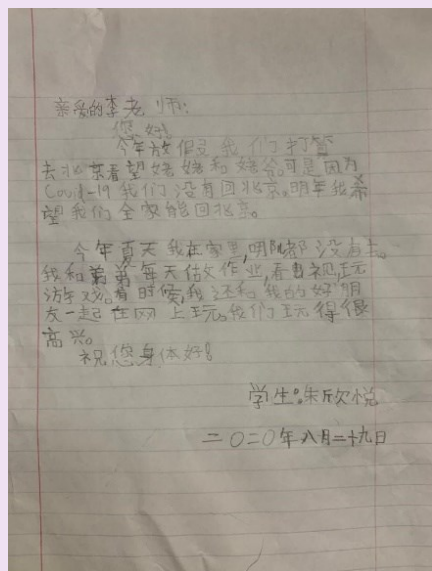 亲爱的李老师:
您好!
今年放假我们打算
去北京看望姥姥和姥爷。可是因为
Covid-19 我们没有回北京。明年我希
望我们全家能回北京。
今年夏天我在家里,哪儿都没有去。
我和弟弟每天做作业,看电视,玩
游戏。有时候,我还和我的好朋
友一起在网上玩。我们玩得很
高兴。
祝您身体好!
学生:朱欣悦
二〇二〇年八月二十九日